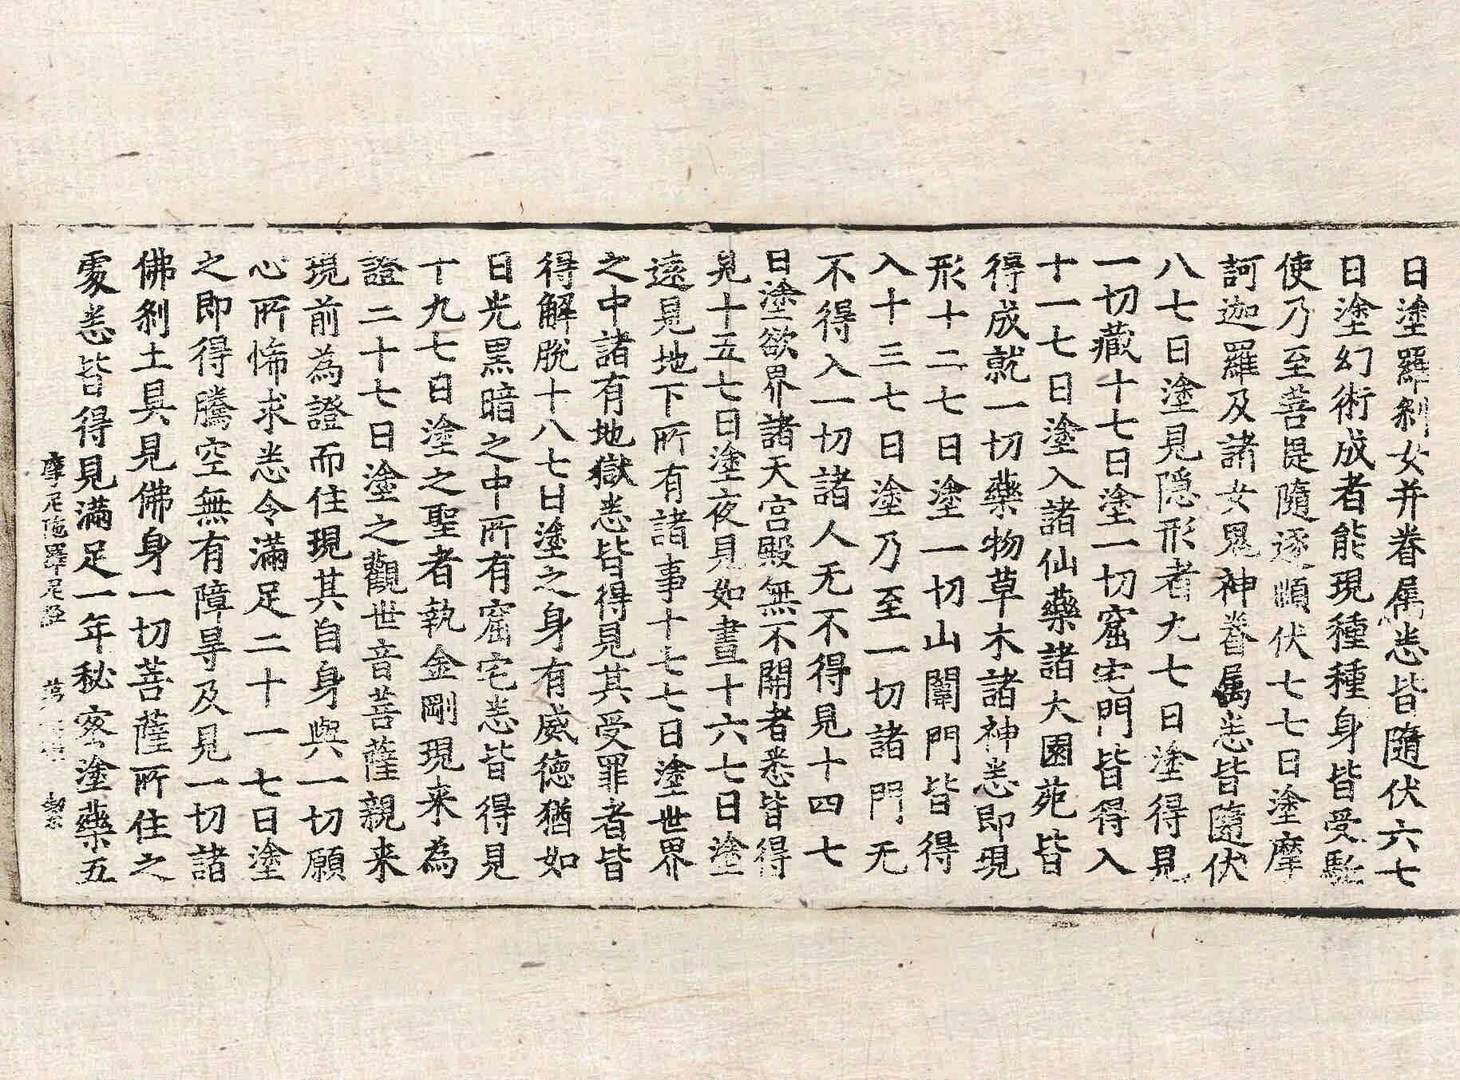 日塗羅刹女并眷属悉皆隨伏六七
日塗幻術成者能現種種身皆受駈
使乃至菩提隨逐順伏七七日塗摩
訶迦羅及諸女鬼神眷属悉皆隨伏
八七日塗見隱形者九七日塗得見
一切藏十七日塗一切窟宅門皆得入
十一七日塗入諸仙藥諸大園苑皆
得成就一切藥物草木諸神悉即現
形十二七日塗一切山闥門皆得
入十三七日塗乃至一切諸門无
不得入一切諸人无不得見十四七
日塗欲界諸天宫殿無不開者悉皆得
見十五七日塗夜見如晝十六七日塗
遠見地下所有諸事十七七日塗世界
之中諸有地獄悉皆得見其受罪者皆
得解脫十八七日塗之身有威德猶如
日光黑暗之中所有窟宅悉皆得見
十九七日塗之聖者執金剛現来為
證二十七日塗之觀世音菩薩親来
現前為證而住現其自身與一切願
心所悕求悉令滿足二十一七日塗
之即得騰空無有障㝵及見一切諸
佛刹土具見佛身一切菩薩所住之
處悉皆得見滿足一年秘密塗藥五
摩尼陁羅尼經